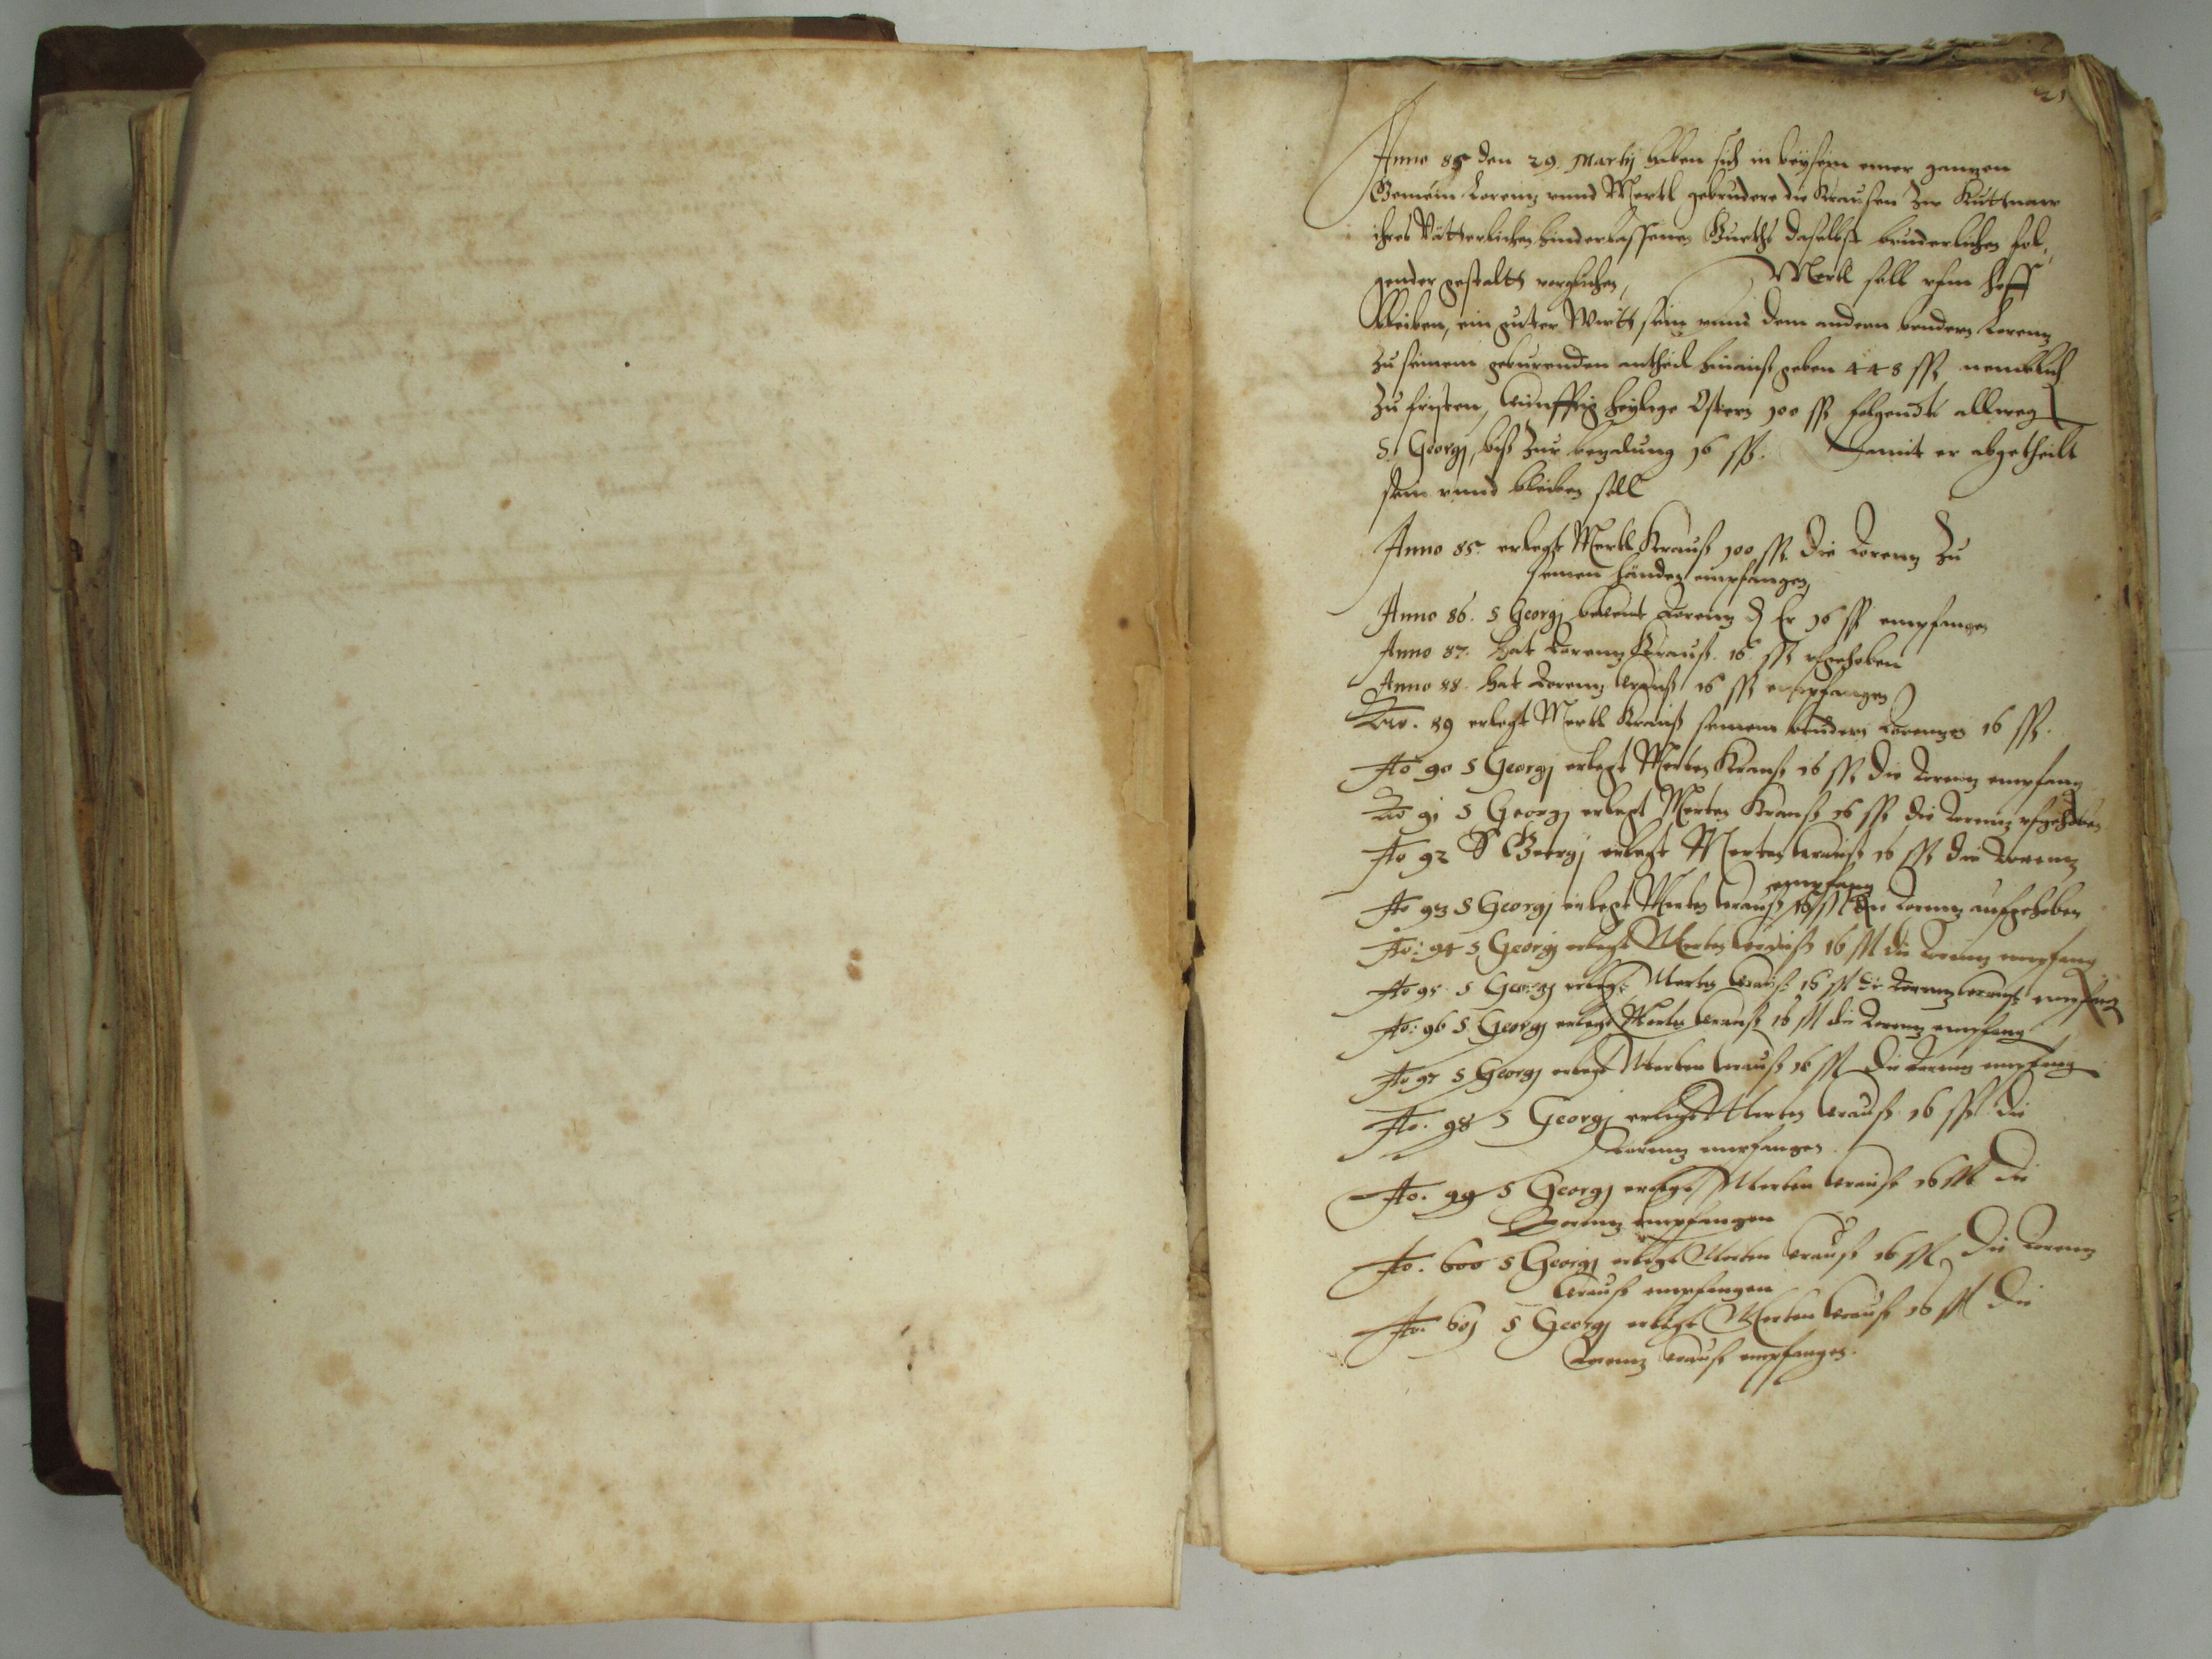 21
Anno 85 den 29. Martij haben sich in beysein einer ganzen
Gemein Lorenz vnnd Mertl gebrudere die Krausen Zur Kuttnaw
ihres Vätterlichen hinderlassenen Gueths daselbst bruderlichen fol,
gender gestaltt verglichen, Mertl soll vfm hoff
bleiben, ein guter Wirtt sein vnnd dem andern brudern Lorenz
zu seinem geburenden antheil hinauß geben 448 ßß nemblich
Zu fristen, kunfftig heylige Ostern 100 ßß folgendts allweg
S. Georgj, biß Zur bezalung 16 ßß. Damit er abgetheilt
sein vnnd bleiben soll
Anno 85. erlegt Mertl Krauß 100 ßß die Lorenz Zu
seinen handen empfangen
Anno 86. S Georgj bekent Lorenz Er 16 ßß empfangen
Anno 87. hat Lorenz Krauß 16 ßß vfgehoben
Anno 88. hat Lorenz Krauß 16 ßß empfangen
Ao. 89 erlegt Mertl Krauß seinem brudern Lorenzen 16 ßß.
Ao 90 S Georgj erlegt Merten Krauß 16 ßß die Lorenz empfang
Ao 91 S Georgj erlegt Merten Krauß 16 ßß die Lorenz vfgehoben
Ao 92 S Georgj erlegt Merten Krauß 16 ßß die Lorenz
empfang
Ao 93 S Georgj erlegt Merten Krauß 16 ßß die Lorenz aufgehoben
Ao: 94 S Georgj erlegt Merten Krauß 16 ßß die Lorenz empfang
Ao 95 S Georgj erlegt Merten Krauß 16 ßß die Lorenz Krauß empfang
Ao: 96 S Georgj erlegt Merten Krauß 16 ßß die Lorenz empfang
Ao 97 S Georgj erlegt Merten Krauß 16 ßß die Lorenz empfang
Ao. 98 S Georgj erlegt Merten Krauß 16 ßß die
Lorenz empfangen.
Ao. 99 S Georgj erlegt Merten Krauß 16 ßß die
Lorenz empfangen
Ao. 600 S Georgj erlegt Merten Krauß 16 ßß die Lorenz
Krauß empfangen
Ao. 601 S Georgj erlegt Merten Krauß 16 ßß die
Lorenz Krauß empfangen.